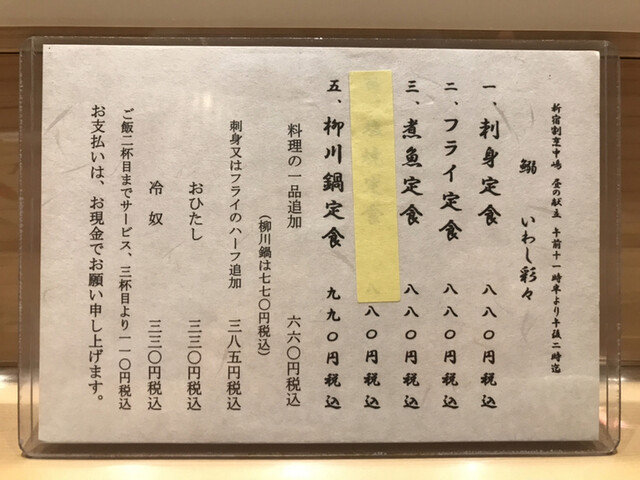 新宿割烹中嶋 昼の献立 午前十一時半より午後二時迄
鰯 いわし彩々
一、刺身定食 八八〇円税込
二、フライ定食 八八〇円税込
三、煮魚定食 八八〇円税込
定食 八八〇円税込
五、柳川鍋定食 九九〇円税込
料理の一品追加 六六〇円税込
(柳川鍋は七七〇円税込)
刺身又はフライのハーフ追加 三八五円税込
おひたし 三三〇円税込
冷奴 三三〇円税込
ご飯二杯目までサービス、三杯目より一一〇円税込
お支払いは、お現金でお願い申し上げます。